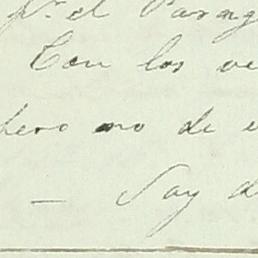 pr. el Parag
Con los ve
pero no de e
— Soy d